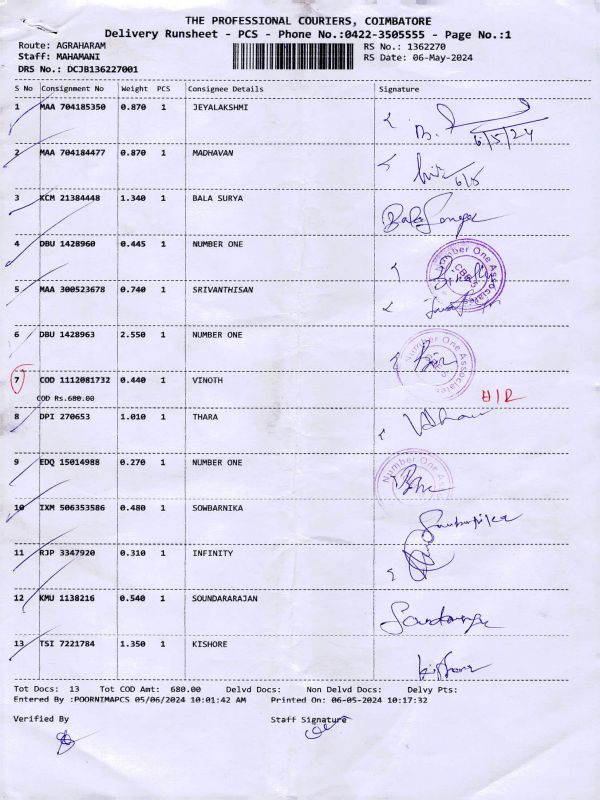 THE PROFESSIONAL COURIERS, COIMBATORE
Delivery Runsheet - PCS - Phone No.:0422-3505555 - Page No.:1
Route: AGRAHARAM RS No.: 1362270
Staff: MAHAMANI RS Date: 06-May-2024
DRS No.: DCJB136227001
S No Consignment No Weight PCS Consignee Details Signature
1 MAA 704185350 0.870 1 JEYALAKSHMI
B.
6/5/24
2 MAA 704184477 0.870 1 MADHAVAN
6/5
3 KCM 21384448 1.340 1 BALA SURYA
4 DBU 1428960 0.445 1 NUMBER ONE
Number One Associates
5 MAA 300523678 0.740 1 SRIVANTHISAN
6 DBU 1428963 2.550 1 NUMBER ONE
Number One Associates
7 COD 1112081732 0.440 1 VINOTH
COD Rs.680.00 H/R
8 DPI 270653 1.010 1 THARA
9 EDQ 15014988 0.270 1 NUMBER ONE
Number One Associates
10 IXM 506353586 0.480 1 SOWBARNIKA
11 RJP 3347920 0.310 1 INFINITY
12 KMU 1138216 0.540 1 SOUNDARARAJAN
13 TSI 7221784 1.350 1 KISHORE
Kishore
Tot Docs: 13 Tot COD Amt: 680.00 Delvd Docs: Non Delvd Docs: Delvy Pts:
Entered By :POORNIMAPCS 05/06/2024 10:01:42 AM Printed On: 06-05-2024 10:17:32
Verified By Staff Signature